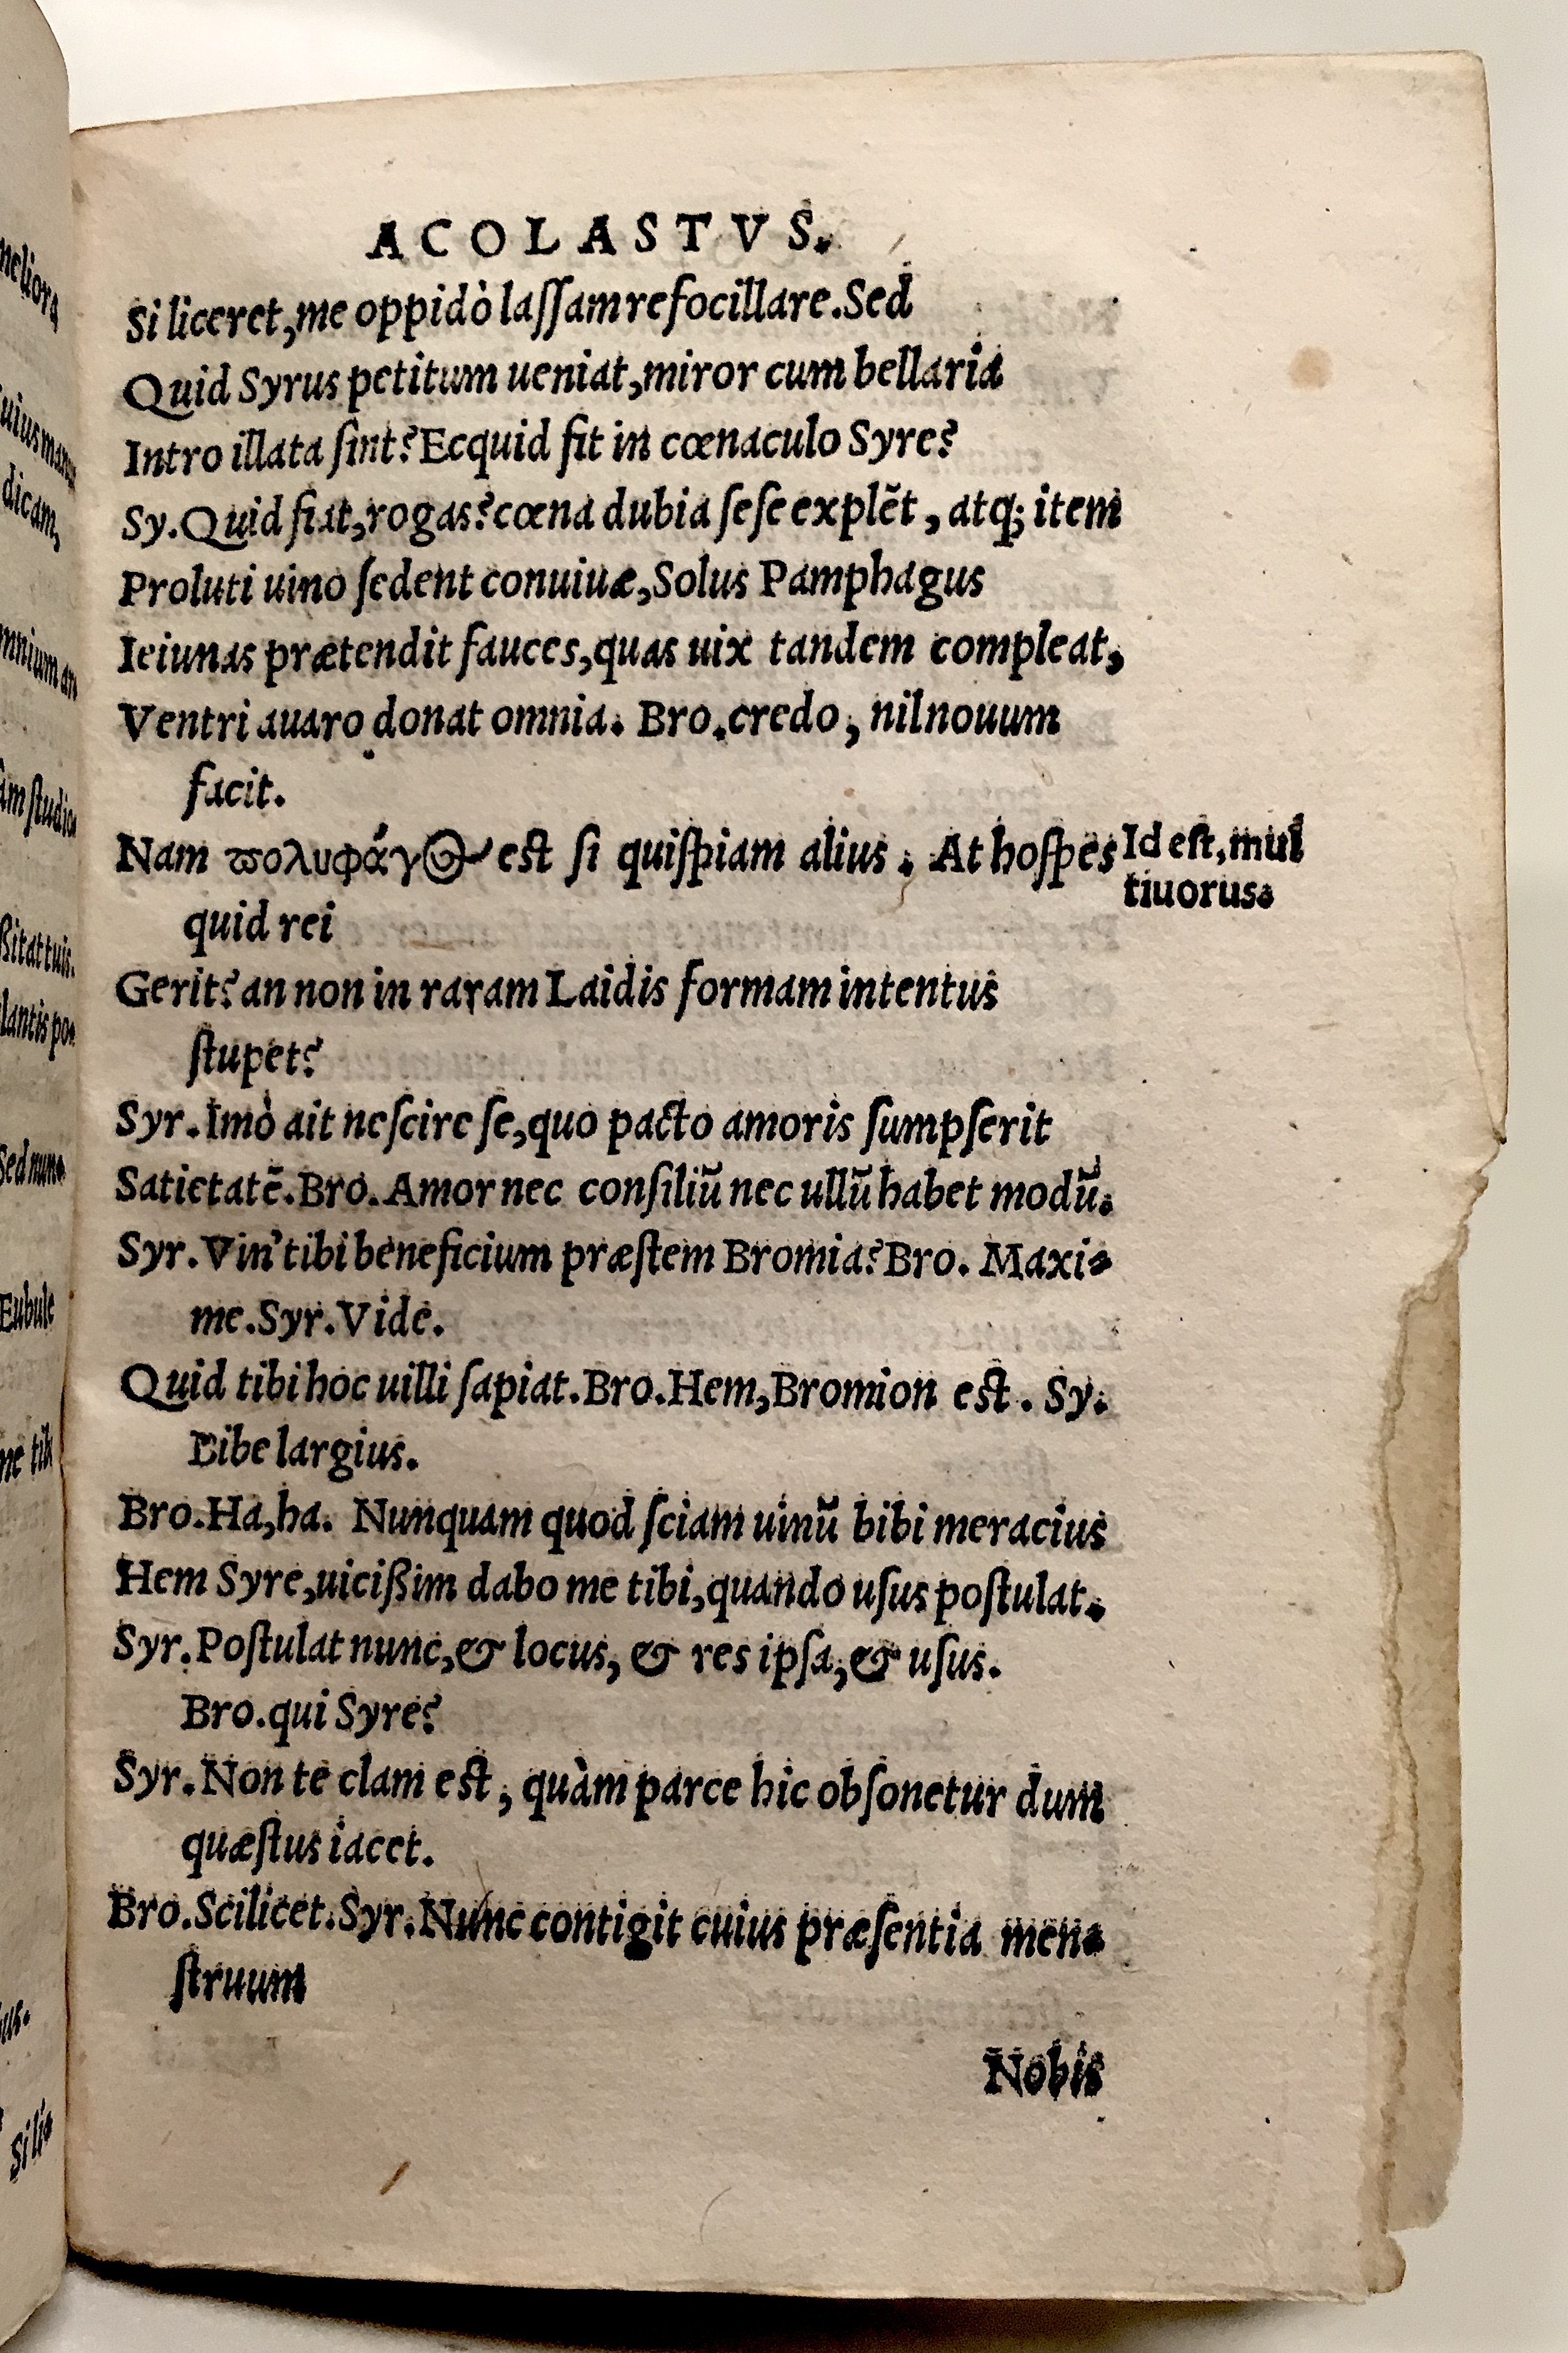 ACOLASTVS.
Si liceret,me oppidò laſſam refocillare.Sed
Quid Syrus petitum ueniat,miror cum bellaria
Intro illata ſint? Ecquid fit in cœnaculo Syre?
Sy.Quid fiat,rogas? cœna dubia ſeſe explẽt, atq; item
Proluti uino ſedent conuiuæ,Solus Pamphagus
Ieiunas prætendit fauces,quas uix tandem compleat,
Ventri auaro donat omnia. Bro.credo, nil nouum
facit.
Nam ϖολυφάγος est ſi quiſpiam alius. At hoſpes
Id eſt,mul
tiuorus.
quid rei
Gerit? an non in raram Laidis formam intentus
ſtupet?
Syr.Imò ait neſcire ſe,quo pacto amoris ſumpſerit
Satietatẽ.Bro.Amor nec conſiliũ nec ullũ habet modũ.
Syr.Vin' tibi beneficium præſtem Bromia? Bro. Maxi-
me.Syr.Vide.
Quid tibi hoc uilli ſapiat.Bro.Hem,Bromion est. Sy.
Bibe largius.
Bro.Ha,ha. Nunquam quod ſciam uinũ bibi meracius
Hem Syre,uicißim dabo me tibi,quando uſus poſtulat.
Syr.Poſtulat nunc,& locus, & res ipſa,& uſus.
Bro.qui Syre?
Syr.Non te clam est, quàm parce hic obſonetur dum
quæſtus iacet.
Bro.Scilicet.Syr.Nunc contigit cuius præſentia men-
ſtruum
Nobis